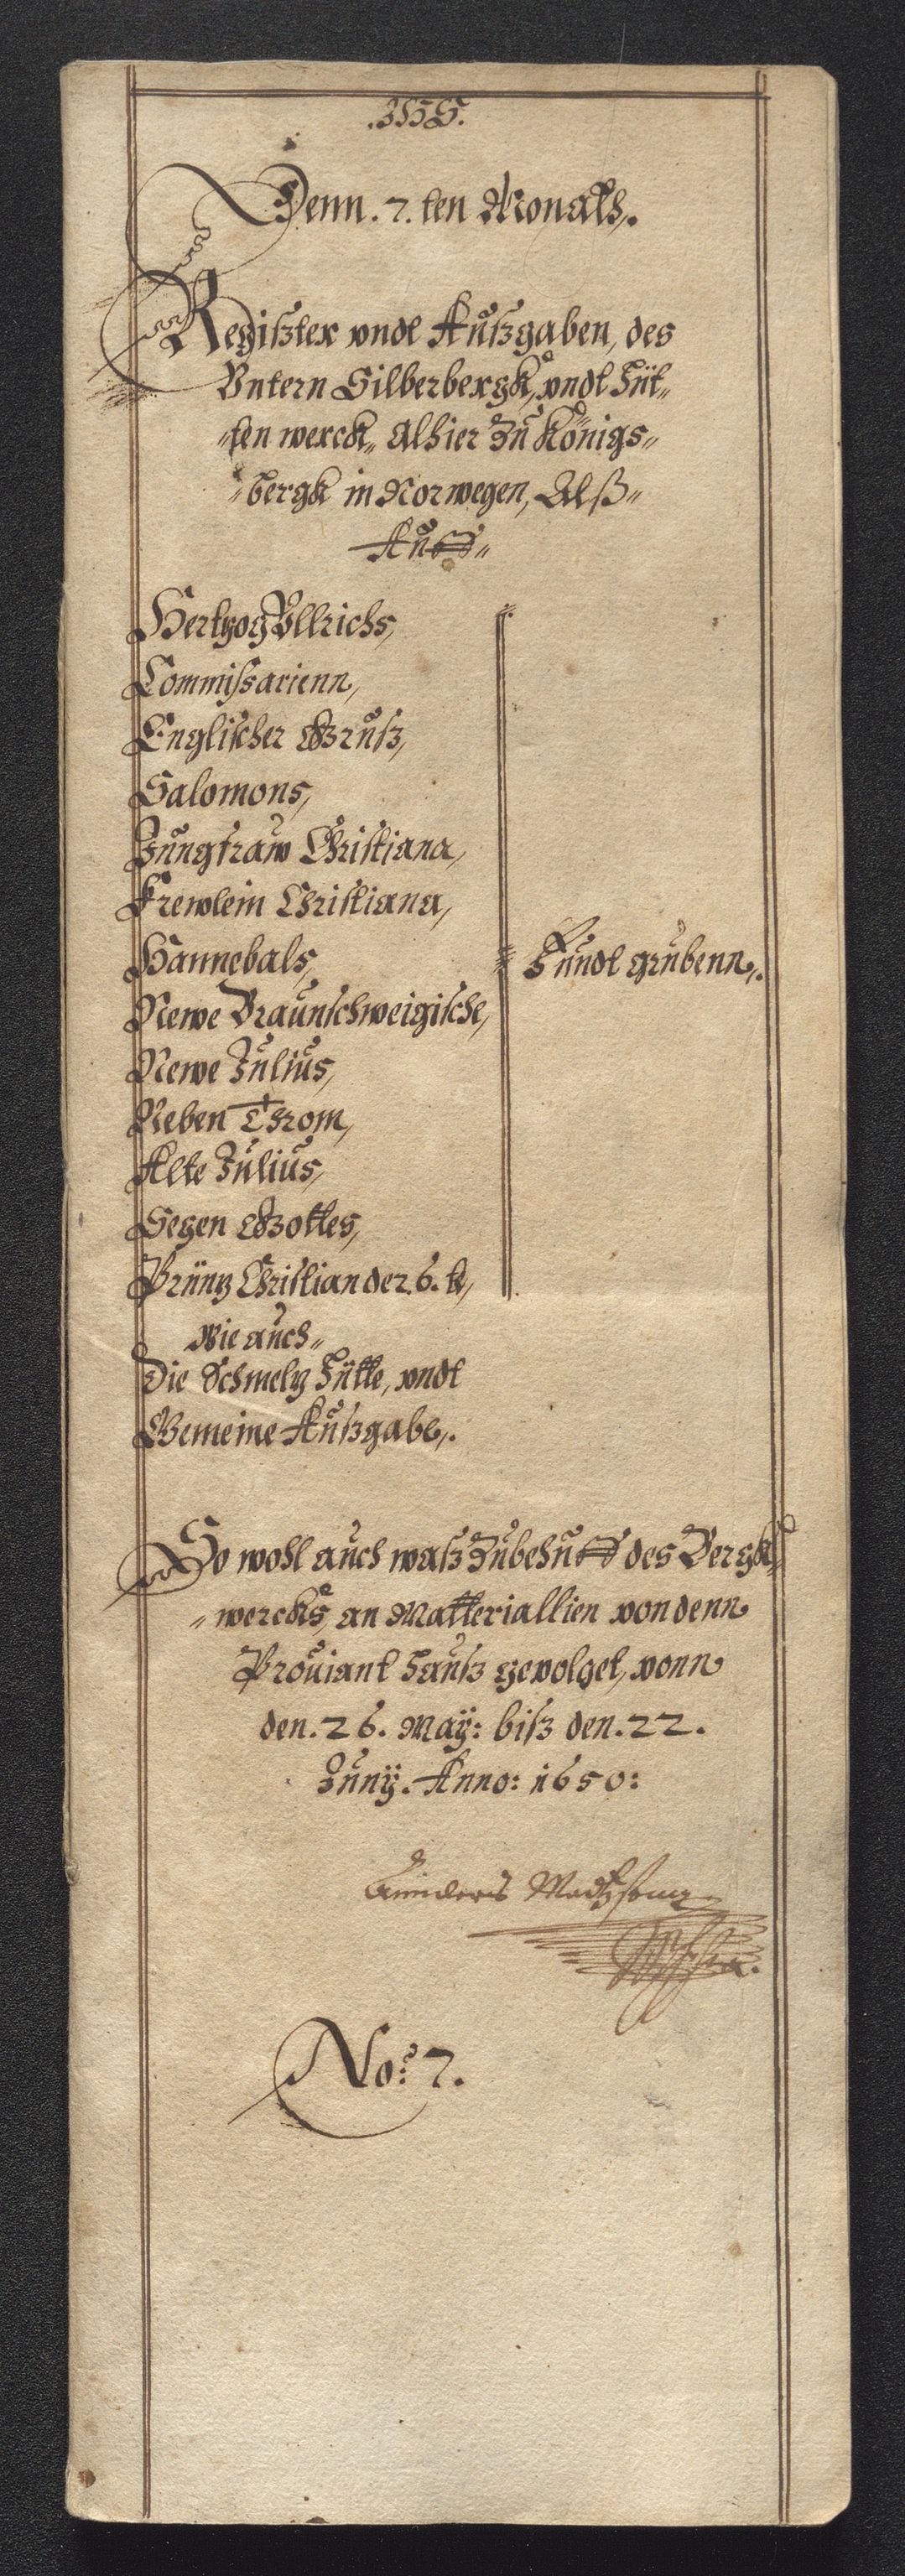 Denn. 7. ten Monaths,.
Regißter vndt Außgaben, des
Vntern Silberbergk, vndt Hüt„
„ten werck„ Alhier Zu Königs„
„bergk in Norwegen, Alß„
Auff„
Hertzog Vllrichs,
Commißarienn,
Englischer Gruß,
Salomons,
Jungfraw Christiana,
Frewlein Christiana,
Hannebals,
Fundt grubenn,.
Newe Braunschweigische,
Newe Julius,
Neben Throm,
Alte Julius,
Segen Gottes,
Printz Christian der 6. te,
Wie auch„
Die Schmeltz Hütte, vndt
Gemeine Außgabe,.
So wohl auch waß Zubehuff des Bergk„
„wercks, an Matteriallien von denn
Prouiant Hauß gevolget, vonn
den. 26. May: biß den. 22.
Juny. Anno: 1650:
No: 7.